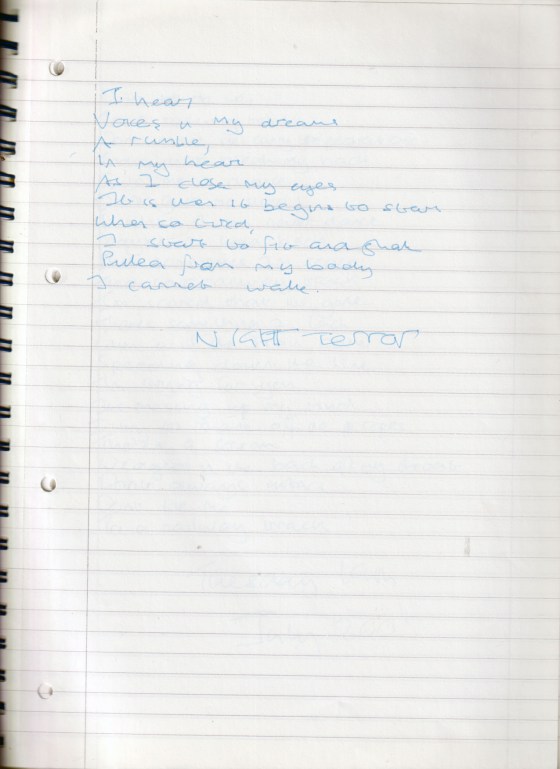 I hear
Voices in my dreams
A rumble,
In my hear
As I close my eyes
It is wen it begins to stear
When so tired,
I start to fit and shak
Pulled from my body
I cannot wake.
NIGHT Terror